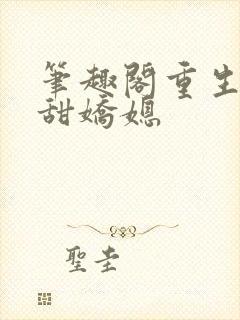 筆趣閣重生
甜嬌媳
聖圭